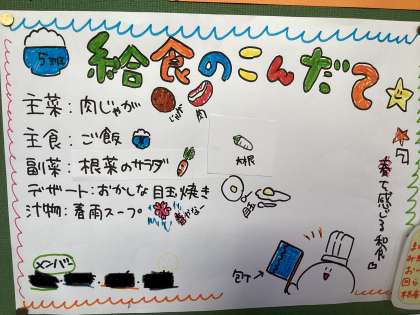 5班
給食のこんだて
主菜：肉じゃが
じゃが
肉
主食：ご飯
副菜：根菜のサラダ
大根
デザート：おかしな目玉焼き
汁物：春雨スープ
春で感じる和食
メンバー
包丁→